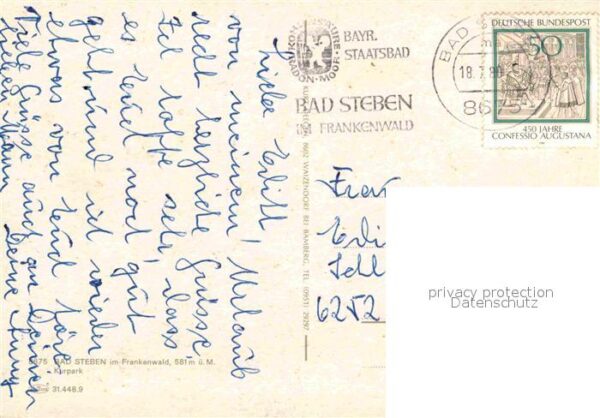 Liebe Edith!
von meinem Urlaub
recht herzliche Grüsse,
Ich hoffe sehr, dass
es Euch noch gut
geht und ich wieder
etwas von Euch höre
Viele Grüsse auch an Deinen
lieben Mann Deine
MOORBAD
BAYR.
STAATSBAD
BAD STEBEN
IM FRANKENWALD
BAD
18.7.80
8675
DEUTSCHE BUNDESPOST
50
450 JAHRE
CONFESSIO AUGUSTANA
8602 WAIZENDORF BEI BAMBERG, TEL. (0951) 29297
Frau
6252
privacy protection
Datenschutz
8675 BAD STEBEN im Frankenwald, 581 m ü. M.
Kurpark
31.448.9